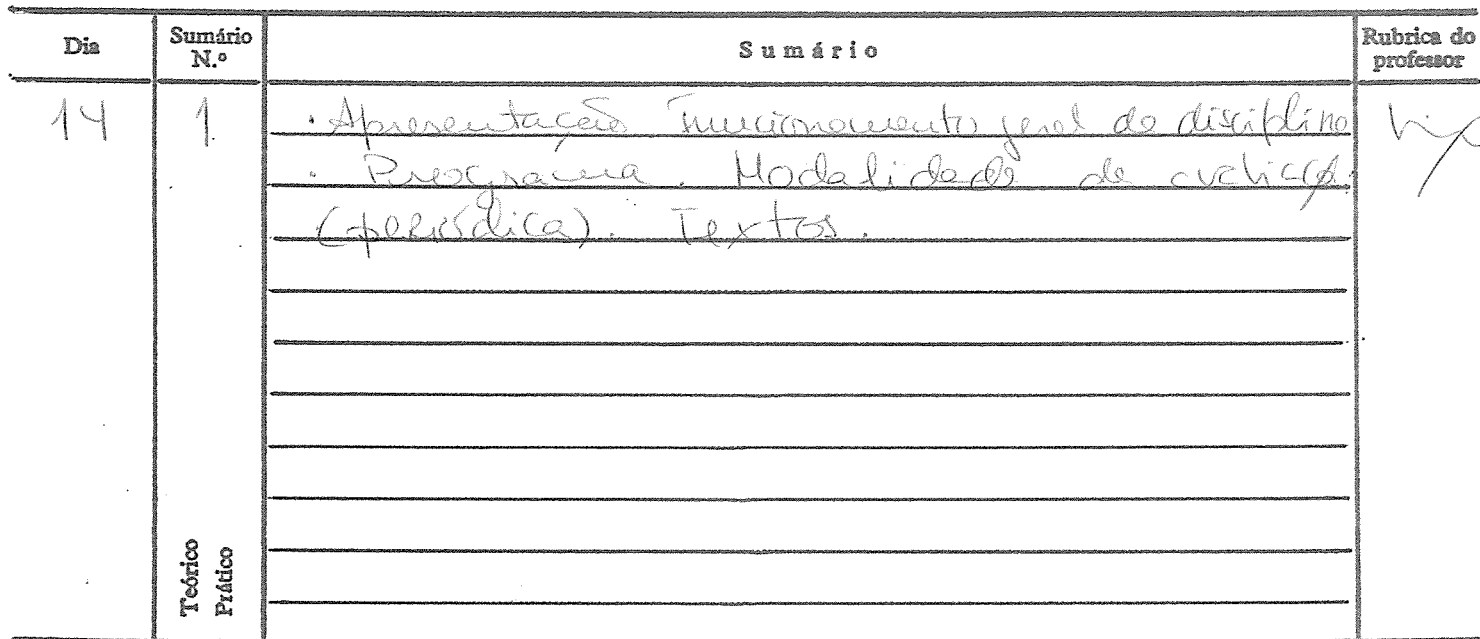 Dia Sumário N.º Sumário Rubrica do professor
14 1 . Apresentação Funcionamento geral da disciplina
. Programa. Modalidade de avaliação
(periódica). Textos.
Teórico
Prático